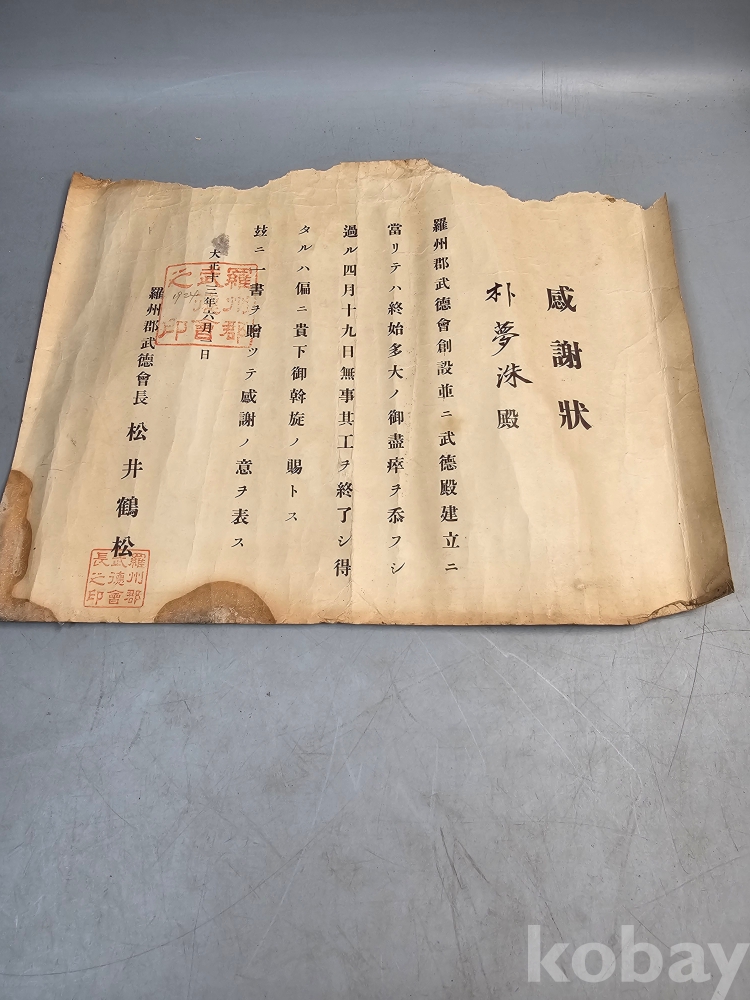 感謝狀
朴夢洙殿
羅州郡武德會創設並ニ武德殿建立ニ
當リテハ終始多大ノ御盡瘁ヲ忝フシ
過ル四月十九日無事其工ヲ終了シ得
タルハ偏ニ貴下御斡旋ノ賜トス
玆ニ一書ヲ贈ッテ感謝ノ意ヲ表ス
大正十三年六月 日
1924
羅州郡武德會長 松井鶴松
羅州郡
武德會
長之印
kobay